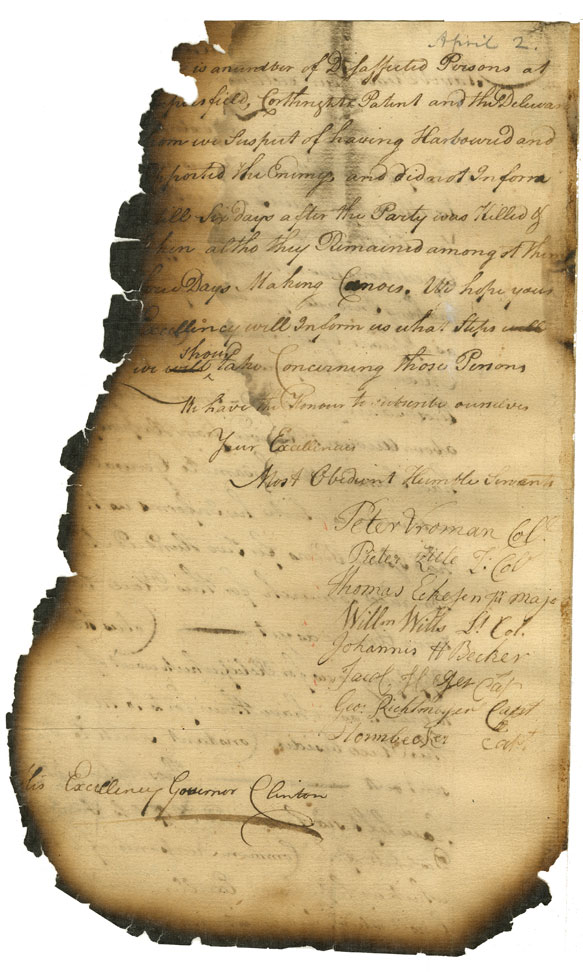 April 2.
is a number of Disaffected Persons at
persfield, Corthrights Patent and the Delewar
om we Suspect of having Harboured and
ported the Enemy and did not Inform
till Six Days after the Party was Killed &
ken altho they Remained amongst them
Days Making Canoes. We hope your
Excellency will Inform us what Steps will
should
we will take Concerning those Persons
We have the Honour to subscribe ourselves
Your Excellencies
Most Obedient Humble Servants
Peter Vroman Coll.
Pieter Zile L. Col
Thomas Eckesen Jr major
Willm Wills Lt Col.
Johannis H Becker
Jacob Hager Cap
Geo: Richtmeyer Capt
Stormbecker Capt
His Excellency Governor Clinton